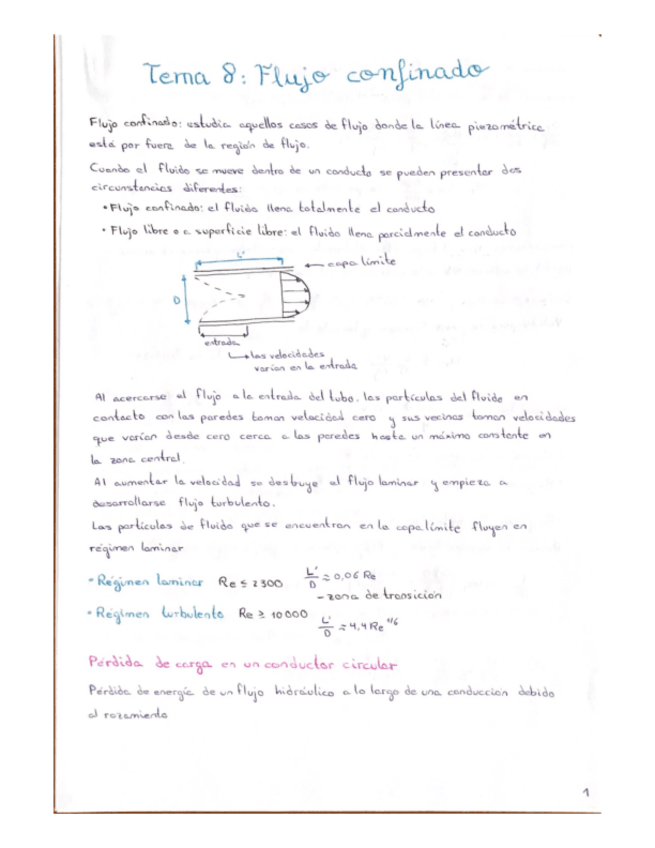 Tema 8: Flujo confinado
Flujo confinado: estudia aquellos casos de flujo donde la línea piezométrica
está por fuera de la región de flujo.
Cuando el fluido se mueve dentro de un conducto se pueden presentar dos
circunstancias diferentes:
• Flujo confinado: el fluido llena totalmente el conducto
• Flujo libre o a superficie libre: el fluido llena parcialmente el conducto
L'
capa límite
D
entrada
las velocidades
varían en la entrada
Al acercarse el flujo a la entrada del tubo, las partículas del fluido en
contacto con las paredes toman velocidad cero y sus vecinas toman velocidades
que varían desde cero cerca a las paredes hasta un máximo constante en
la zona central.
Al aumentar la velocidad se destruye el flujo laminar y empieza a
desarrollarse flujo turbulento.
Las partículas de fluido que se encuentran en la capa límite fluyen en
régimen laminar
- Régimen laminar Re ≤ 2300 L'/D ≈ 0,06 Re
- zona de transición
• Régimen turbulento Re ≥ 10000 L'/D ≈ 4,4 Re^1/6
Pérdida de carga en un conductor circular
Pérdida de energía de un flujo hidráulico a lo largo de una conducción debido
al rozamiento
1